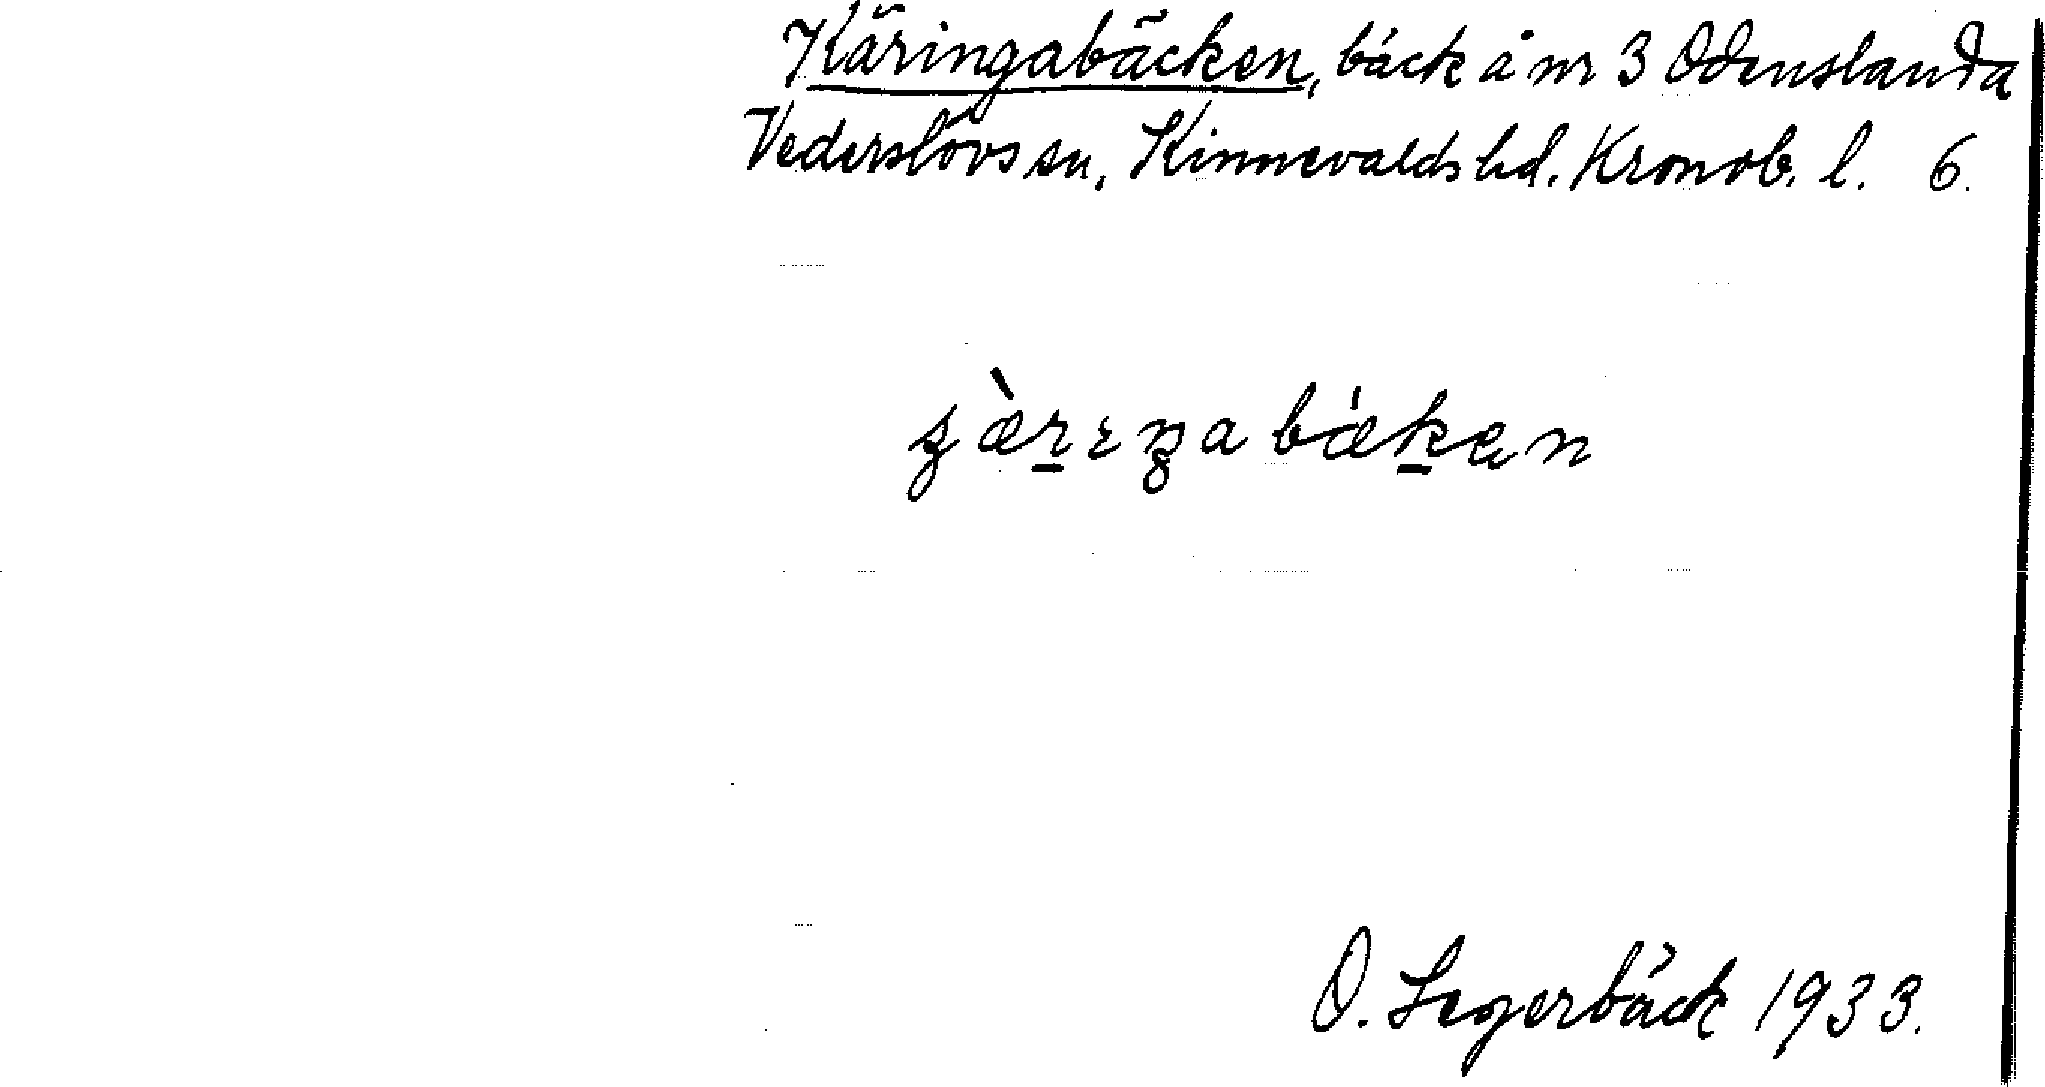 Käringabäcken, bäck å nr 3 Odenslanda
Vederslövs sn, Kinnevalds hd. Kronob. l. 6.
O. Segerbäck 1933.